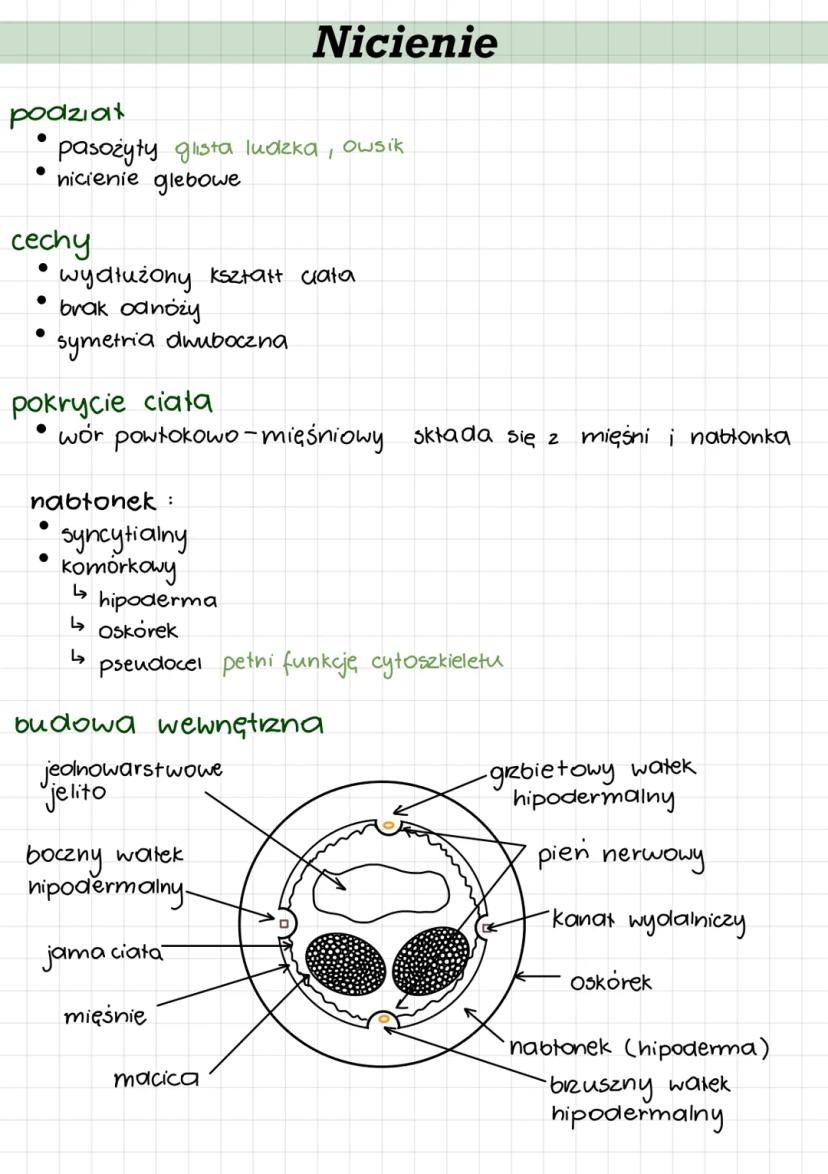 Nicienie
podział
• pasożyty glista ludzka, owsik
• nicienie glebowe
cechy
• wydłużony kształt ciała
• brak odnóży
• symetria dwuboczna
pokrycie ciała
• wór powłokowo-mięśniowy składa się z mięśni i nabłonka
nabłonek :
• syncytialny
• komórkowy
↳ hipoderma
↳ oskórek
↳ pseudocel pełni funkcję cytoszkieletu
budowa wewnętrzna
jednowarstwowe
jelito
boczny wałek
hipodermalny
jama ciała
mięśnie
macica
grzbietowy wałek
hipodermalny
pień nerwowy
kanał wydalniczy
oskórek
nabłonek (hipoderma)
brzuszny wałek
hipodermalny